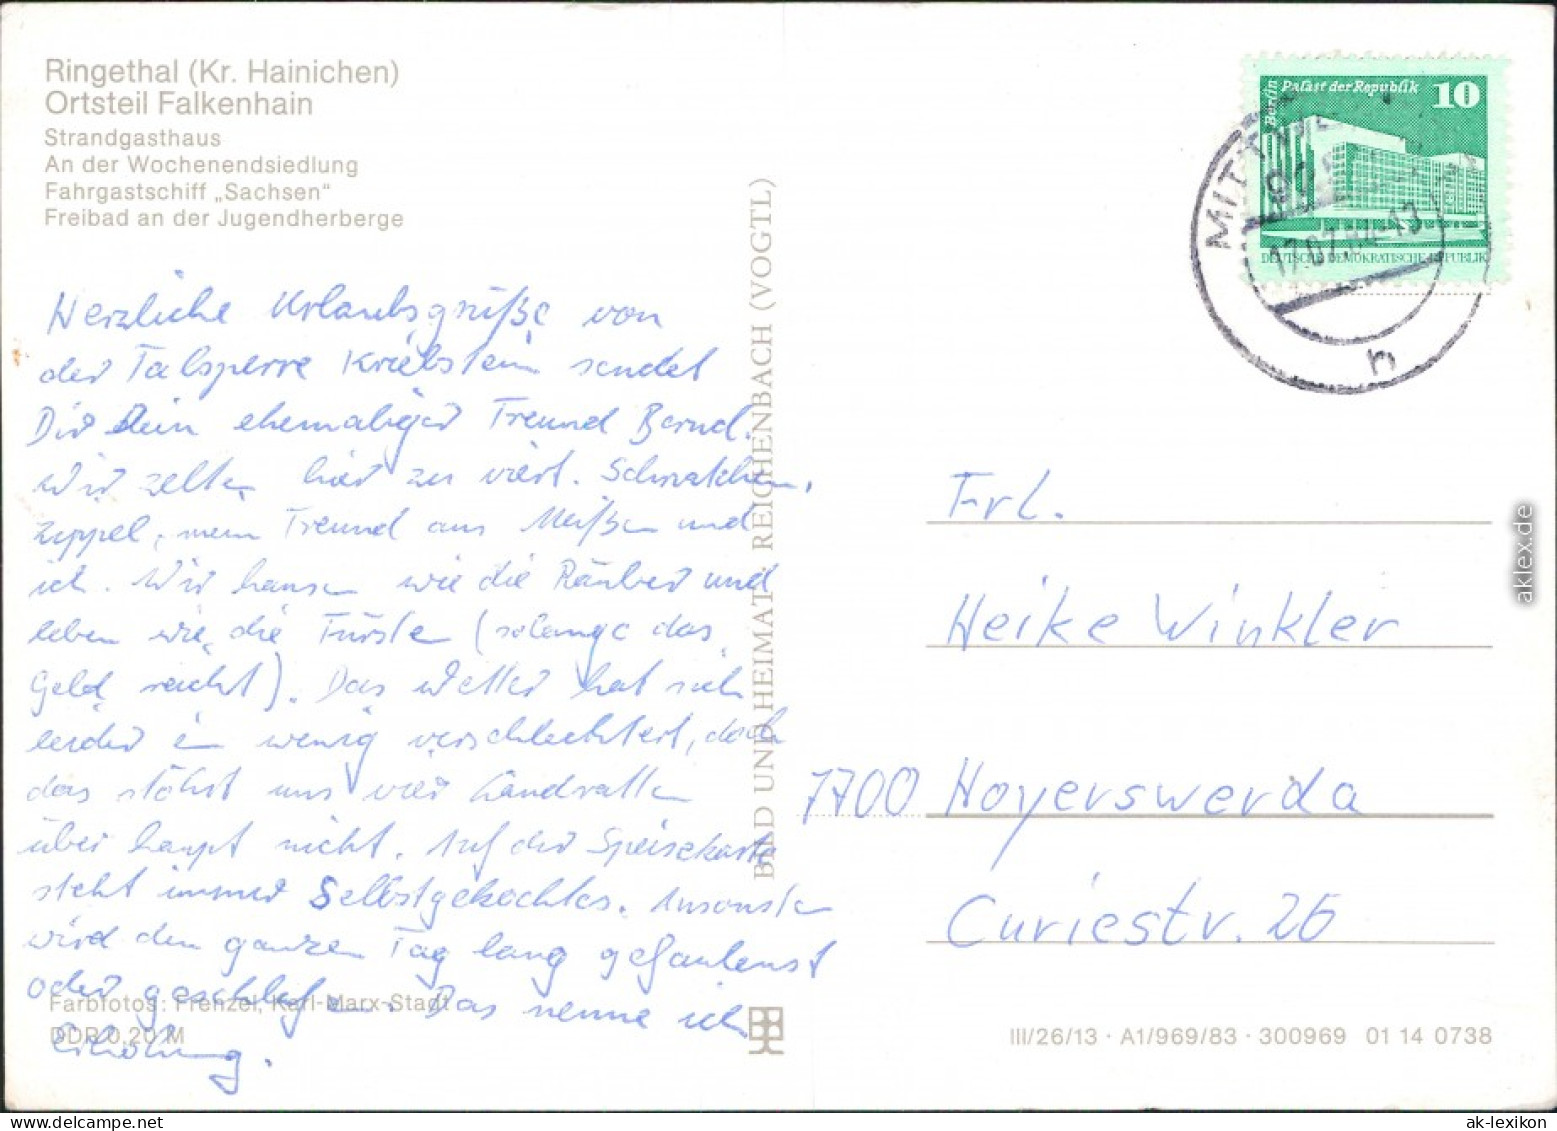 Ringethal (Kr. Hainichen)
Ortsteil Falkenhain
Strandgasthaus
An der Wochenendsiedlung
Fahrgastschiff „Sachsen“
Freibad an der Jugendherberge
Herzliche Urlaubsgrüße von
der Talsperre Kriebstein sendet
Dir Dein ehemaliger Freund Bernd.
Wir zelten hier zu viert. Schnatchen,
Zippel, mein Freund aus Meißen und
ich. Wir hausen wie die Räuber und
leben wie die Fürsten (solange das
Geld reicht). Das Wetter hat sich
leider ein wenig verschlechtert, doch
das stöhrt uns vier Landratten
überhaupt nicht. Auf der Speisekarte
steht immer Selbstgekochtes. Ansonsten
wird den ganzen Tag lang gefaulenst
oder geschlafen. Das nenne ich
Erholung.
Farbfotos: Frenzel, Karl-Marx-Stadt
DDR 0,20 M
BILD UND HEIMAT · REICHENBACH (VOGTL)
Berlin
Palast der Republik
10
DEUTSCHE DEMOKRATISCHE REPUBLIK
MITTW
17.07.84-13
h
Frl.
Heike Winkler
7700 Hoyerswerda
Curiestr. 26
III/26/13 · A1/969/83 · 300969 01 14 0738
aklex.de
ak-lexikon